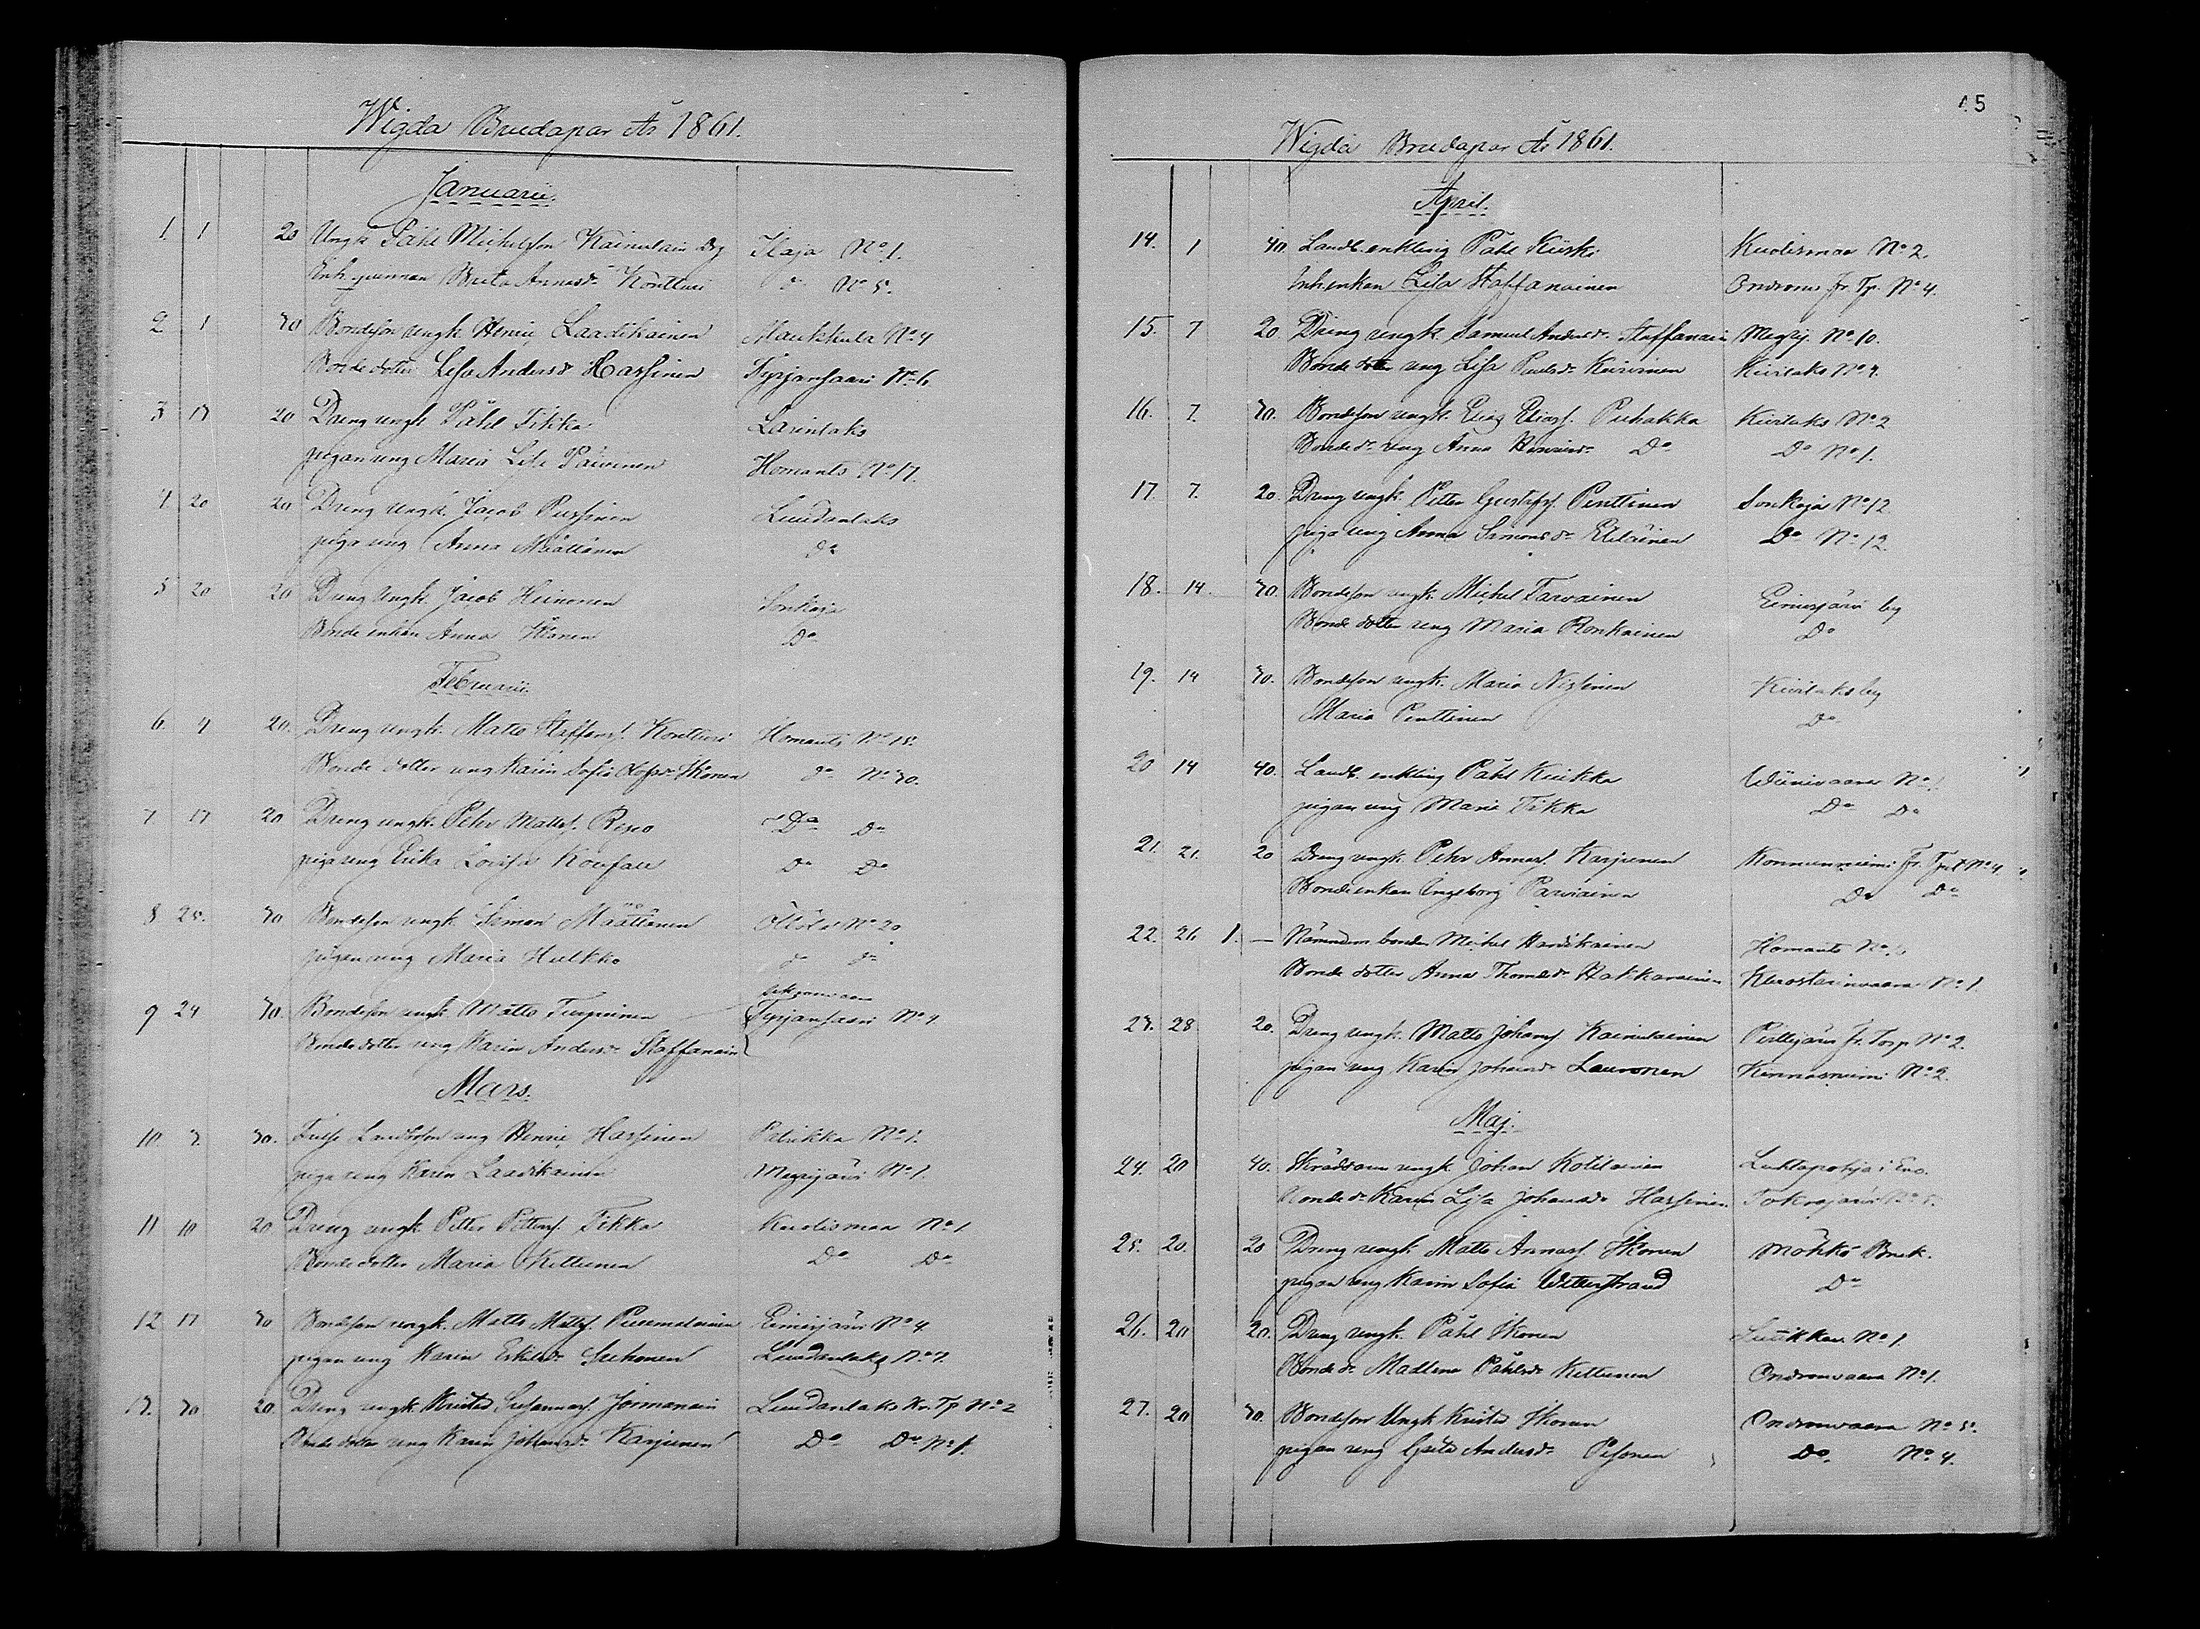 Wigda Brudapar År 1861.
Januarii.
1. 1 20 Ungk Påhl Michelsson Kainulain Drg Ilaja No 1.
Enk. pigan Breta Annasdr Kontturi do No 5.
2 1 30 Bondeson ungk Henric Laasikainen Maukkula No 4
Bonde dotter Lisa Andersdr Hassinen Syrjansaari No 6.
3 13 20 Dreng ungk Påhl Tikka Larinlaks
pigan ung Maria Lisa Päivinen Ilomants No 17.
4 20 20 Dreng ungk. Jacob Pussinen Luudanlaks
piga ung Anna Määttänen do
5 20 20 Dreng Ungk. Jacob Heinonen Sonkaja
Bonde enkan Anna Ikonen Do
Februarii.
6. 4 20. Dreng ungk. Matts Staffanss. Kontturi Ilomants No 15.
Bonde dotter ung Karin Sofia Olofsdr Ikonen do No 30.
7 17 20 Dreng ungk. Pehr Mattss. Repo Do Do
piga ung Erika Lovisa Do Do
8 25. 30 Bondeson ungk. Simon Määttänen No 20
pigan ung Maria Hulkko do do
9 24 30. Bondeson ungk Matts Turpeinen Syrjansaari No 4.
Bonde dotter ung Karin Andersdr Staffanain
Mars.
10 3. 30. Landbosson ung Henric Hassinen Patrikka No 1.
piga ung Karin Laasikainen Megrijärvi No 1.
11 10 20 Dreng ungk Petter Petterss. Tikka Kuolismaa No 1
Bonde dotter Maria Kettunen Do Do
12 17 30 Bondeson ungk. Matts Mattss. Puumalainen Eimisjärvi No 4.
pigan ung Karin Eskilsdr Luudanlaks No 7.
13. 30 20. Dreng ungk. Kristed Susannass. Jormanain Luudanlaks Kr. Tp No 2
Bonde dotter ung Karin Johansdr Karjunen Do Do No 1.
45
Wigda Brudapar År 1861.
April.
14. 1 40. Landb. enkling Påhl Kiiski Kuolismaa No 2.
Inh.enkan Lisa Staffanainen Ondronv. fr. Tp. No 4.
15. 7 20. Dreng ungk. Samuel Anderss. Staffanain Megrij. No 10.
Bonde dotter ung Lisa Paulsdr Kuivinen Kivilaks No 4.
16. 7. 30. Bondeson ungk. Elias Eliass. Puhakka Kivilaks No 2
Bondedr ung Anna Henricsdr Do Do No 1.
17. 7. 20. Dreng ungk. Petter Gustafss. Penttinen Sonkaja No 12.
piga ung Anna Simonsdr Eteläinen Do No 12.
18. 14. 30. Bondeson ungk. Michel Tarvainen Eimisjärvi by
Bonde dotter ung Maria Ronkainen Do
19. 14 30. Bondeson ungk. Maria Nissinen Kivilaks by
Maria Penttinen Do
20 14 40. Landb. enkling Påhl Kuikka No 1.
pigan ung Maria Tikka Do Do
21. 21. 20 Dreng ungk. Pehr Annass. Karjunen Konnunniemi Fr. Tp. No 4.
Bondeenkan Ingeborg Parviainen Do Do
22. 26 1. — Nämndem. bonden Michel Hardikainen Ilomants No
Bonde dotter Anna Thomasdr Hakkarainen Kuostarinvaara No 1.
23. 28 20. Dreng ungk. Matts Johanss. Kainulainen Fr. Torp No 2.
pigan ung Karin Johansdr Lauronen Kinnasniemi No 2.
Maj.
24. 20 40. Skräddaren ungk. Johan Kotilainen Luhtapohja i Eno.
Bondedr Karin Lisa Johansdr Hassinen Tokrajärvi No 5.
25. 20. 20 Dreng ungk. Matts Annass. Ikonen Möhkö Bruk.
pigan ung Karin Sofia Wetterstrand Do
26. 20 20. Dreng ungk. Påhl Ikonen Lutikkav. No 1.
Bonde dr Madlena Påhlsdr Kettunen Ondronvaara No 1.
27. 20 30. Bondeson Ungk Kristed Ikonen Ondronvaara No 5.
pigan ung Greta Andersdr Pesonen Do. No 4.